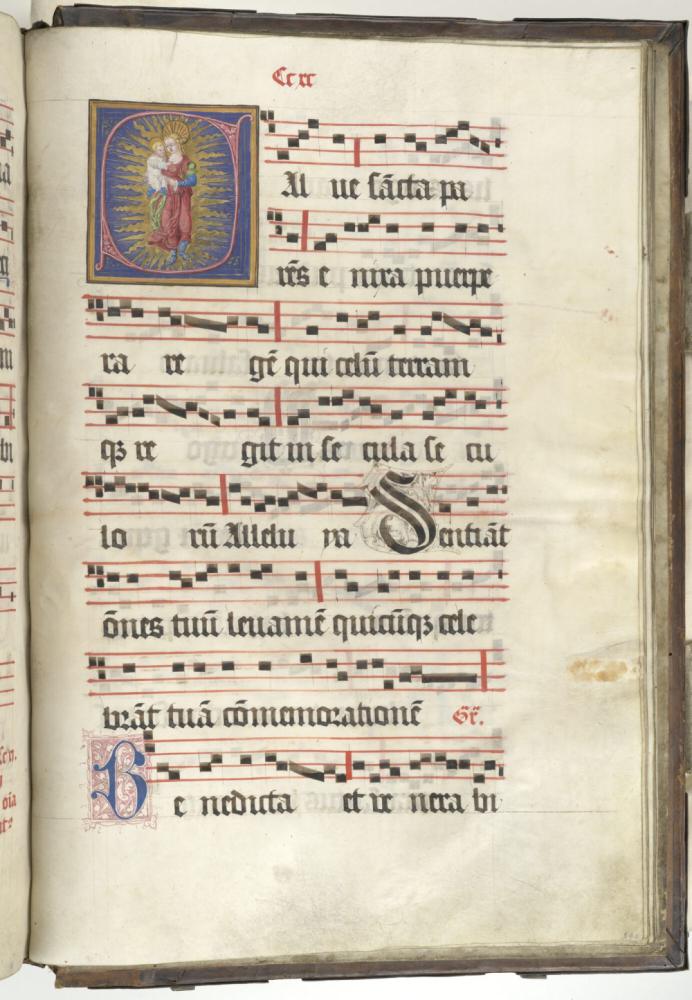 Ccxc
SAl ue sācta pa
rēs e nixa puerpe
ra re gē qui celū terram
qȝ re git in se cula se cu
lo rū Allelu ya Sentiāt
ōnes tuū leuamē quicūqȝ cele
brāt tuā cōmemorationē Gr̄.
Be nedicta et ve nera bi